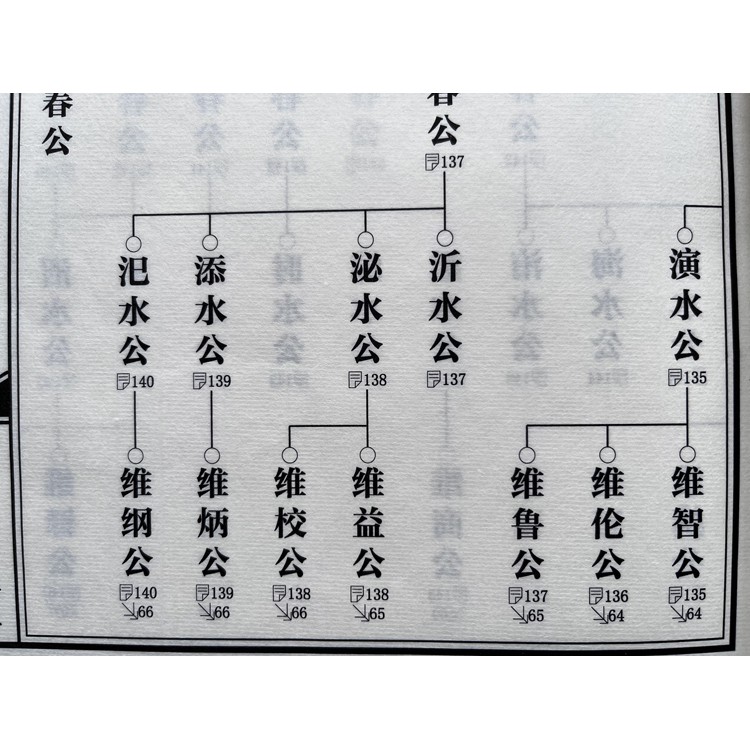 春公
137
春公
演水公
135
沂水公
137
泌水公
138
添水公
139
汜水公
140
维智公
135
64
维伦公
136
64
维鲁公
137
65
维益公
138
65
维校公
138
66
维炳公
139
66
维纲公
140
66